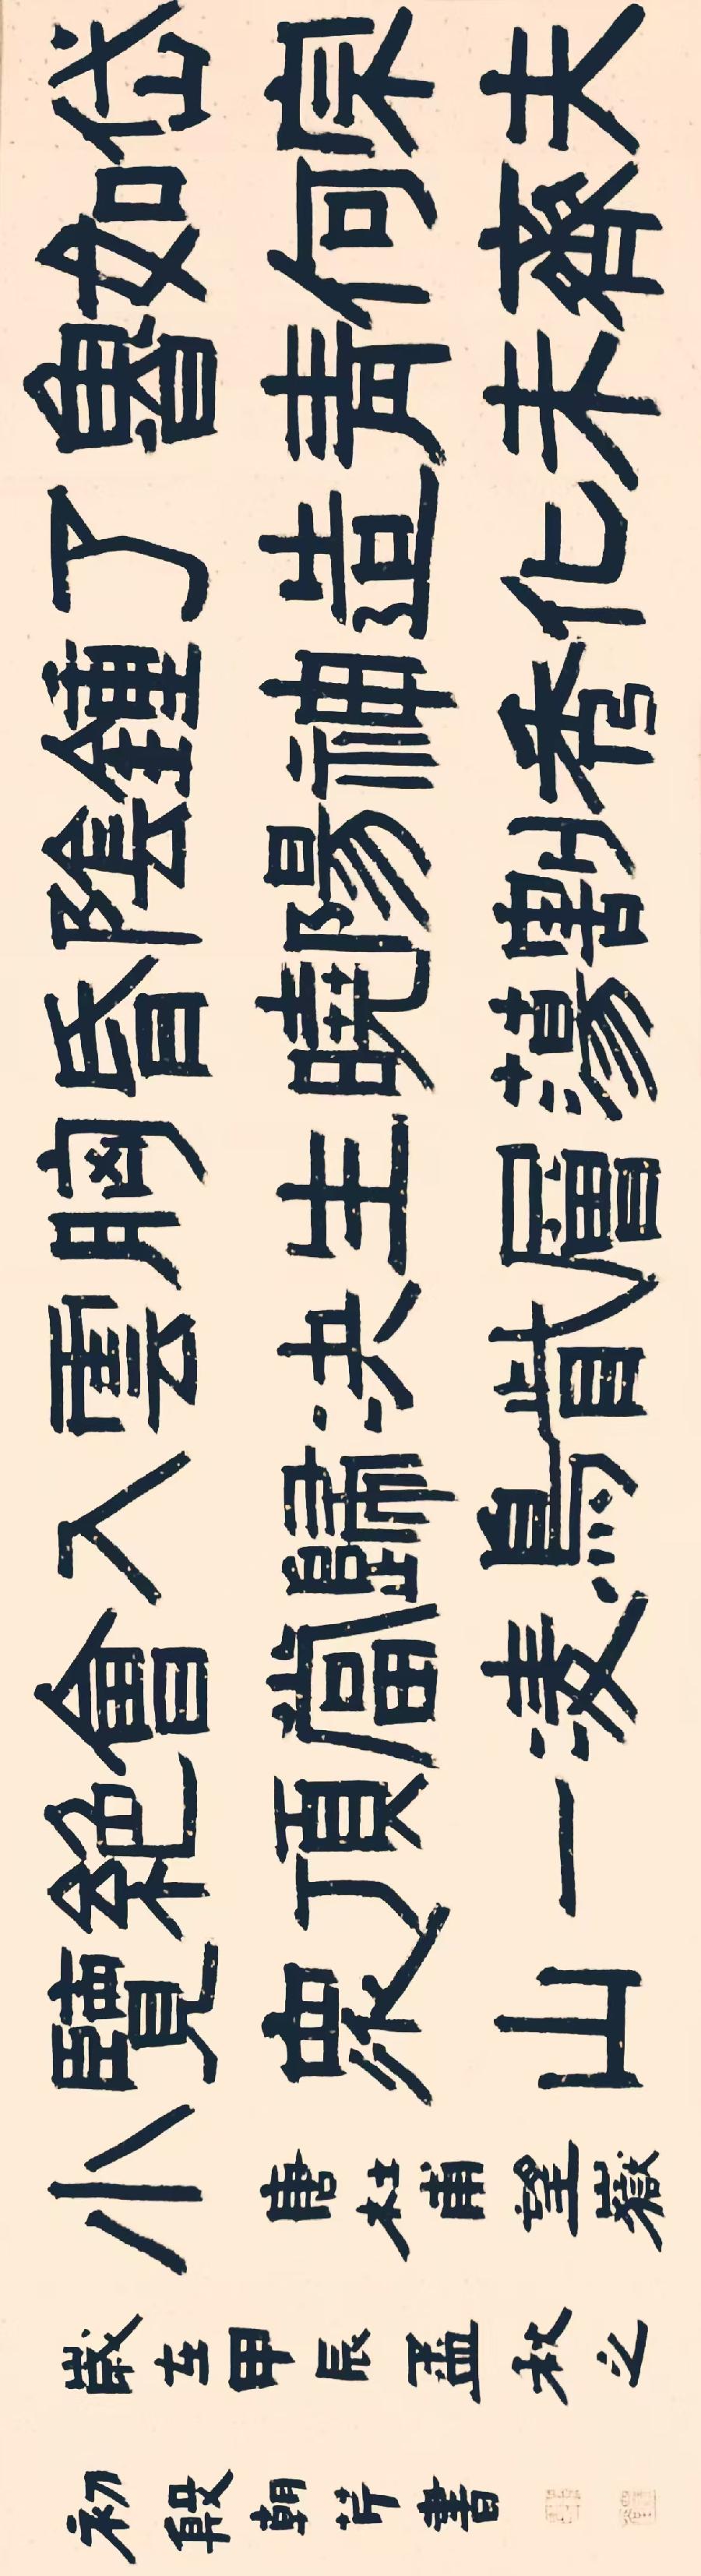 岱宗夫
如何齊
魯青未
了造化
鍾神秀
陰陽割
昏曉蕩
胸生層
雲决眥
入歸鳥
會當凌
絕頂一
覽眾山
小唐杜甫望嶽
歲在甲辰孟秋之
初段朝芹書